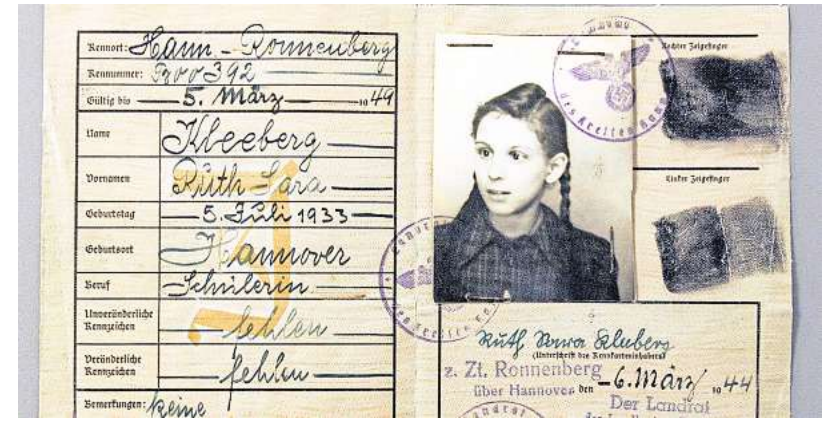 Kennort: Hann - Ronnenberg
Kennummer: B00392
Gültig bis 5. März 1949
Name Kleeberg
Vornamen Ruth Sara
Geburtstag 5. Juli 1933
Geburtsort Hannover
Beruf Schülerin
Unveränderliche
Kennzeichen fehlen
Veränderliche
Kennzeichen fehlen
Bemerkungen: keine
J
Rechter Zeigefinger
Linker Zeigefinger
des Kreises
Ruth Sara Kleeberg
(Unterschrift des Kennkarteninhabers)
z. Zt. Ronnenberg
über Hannover den 6. März 1944
Der Landrat